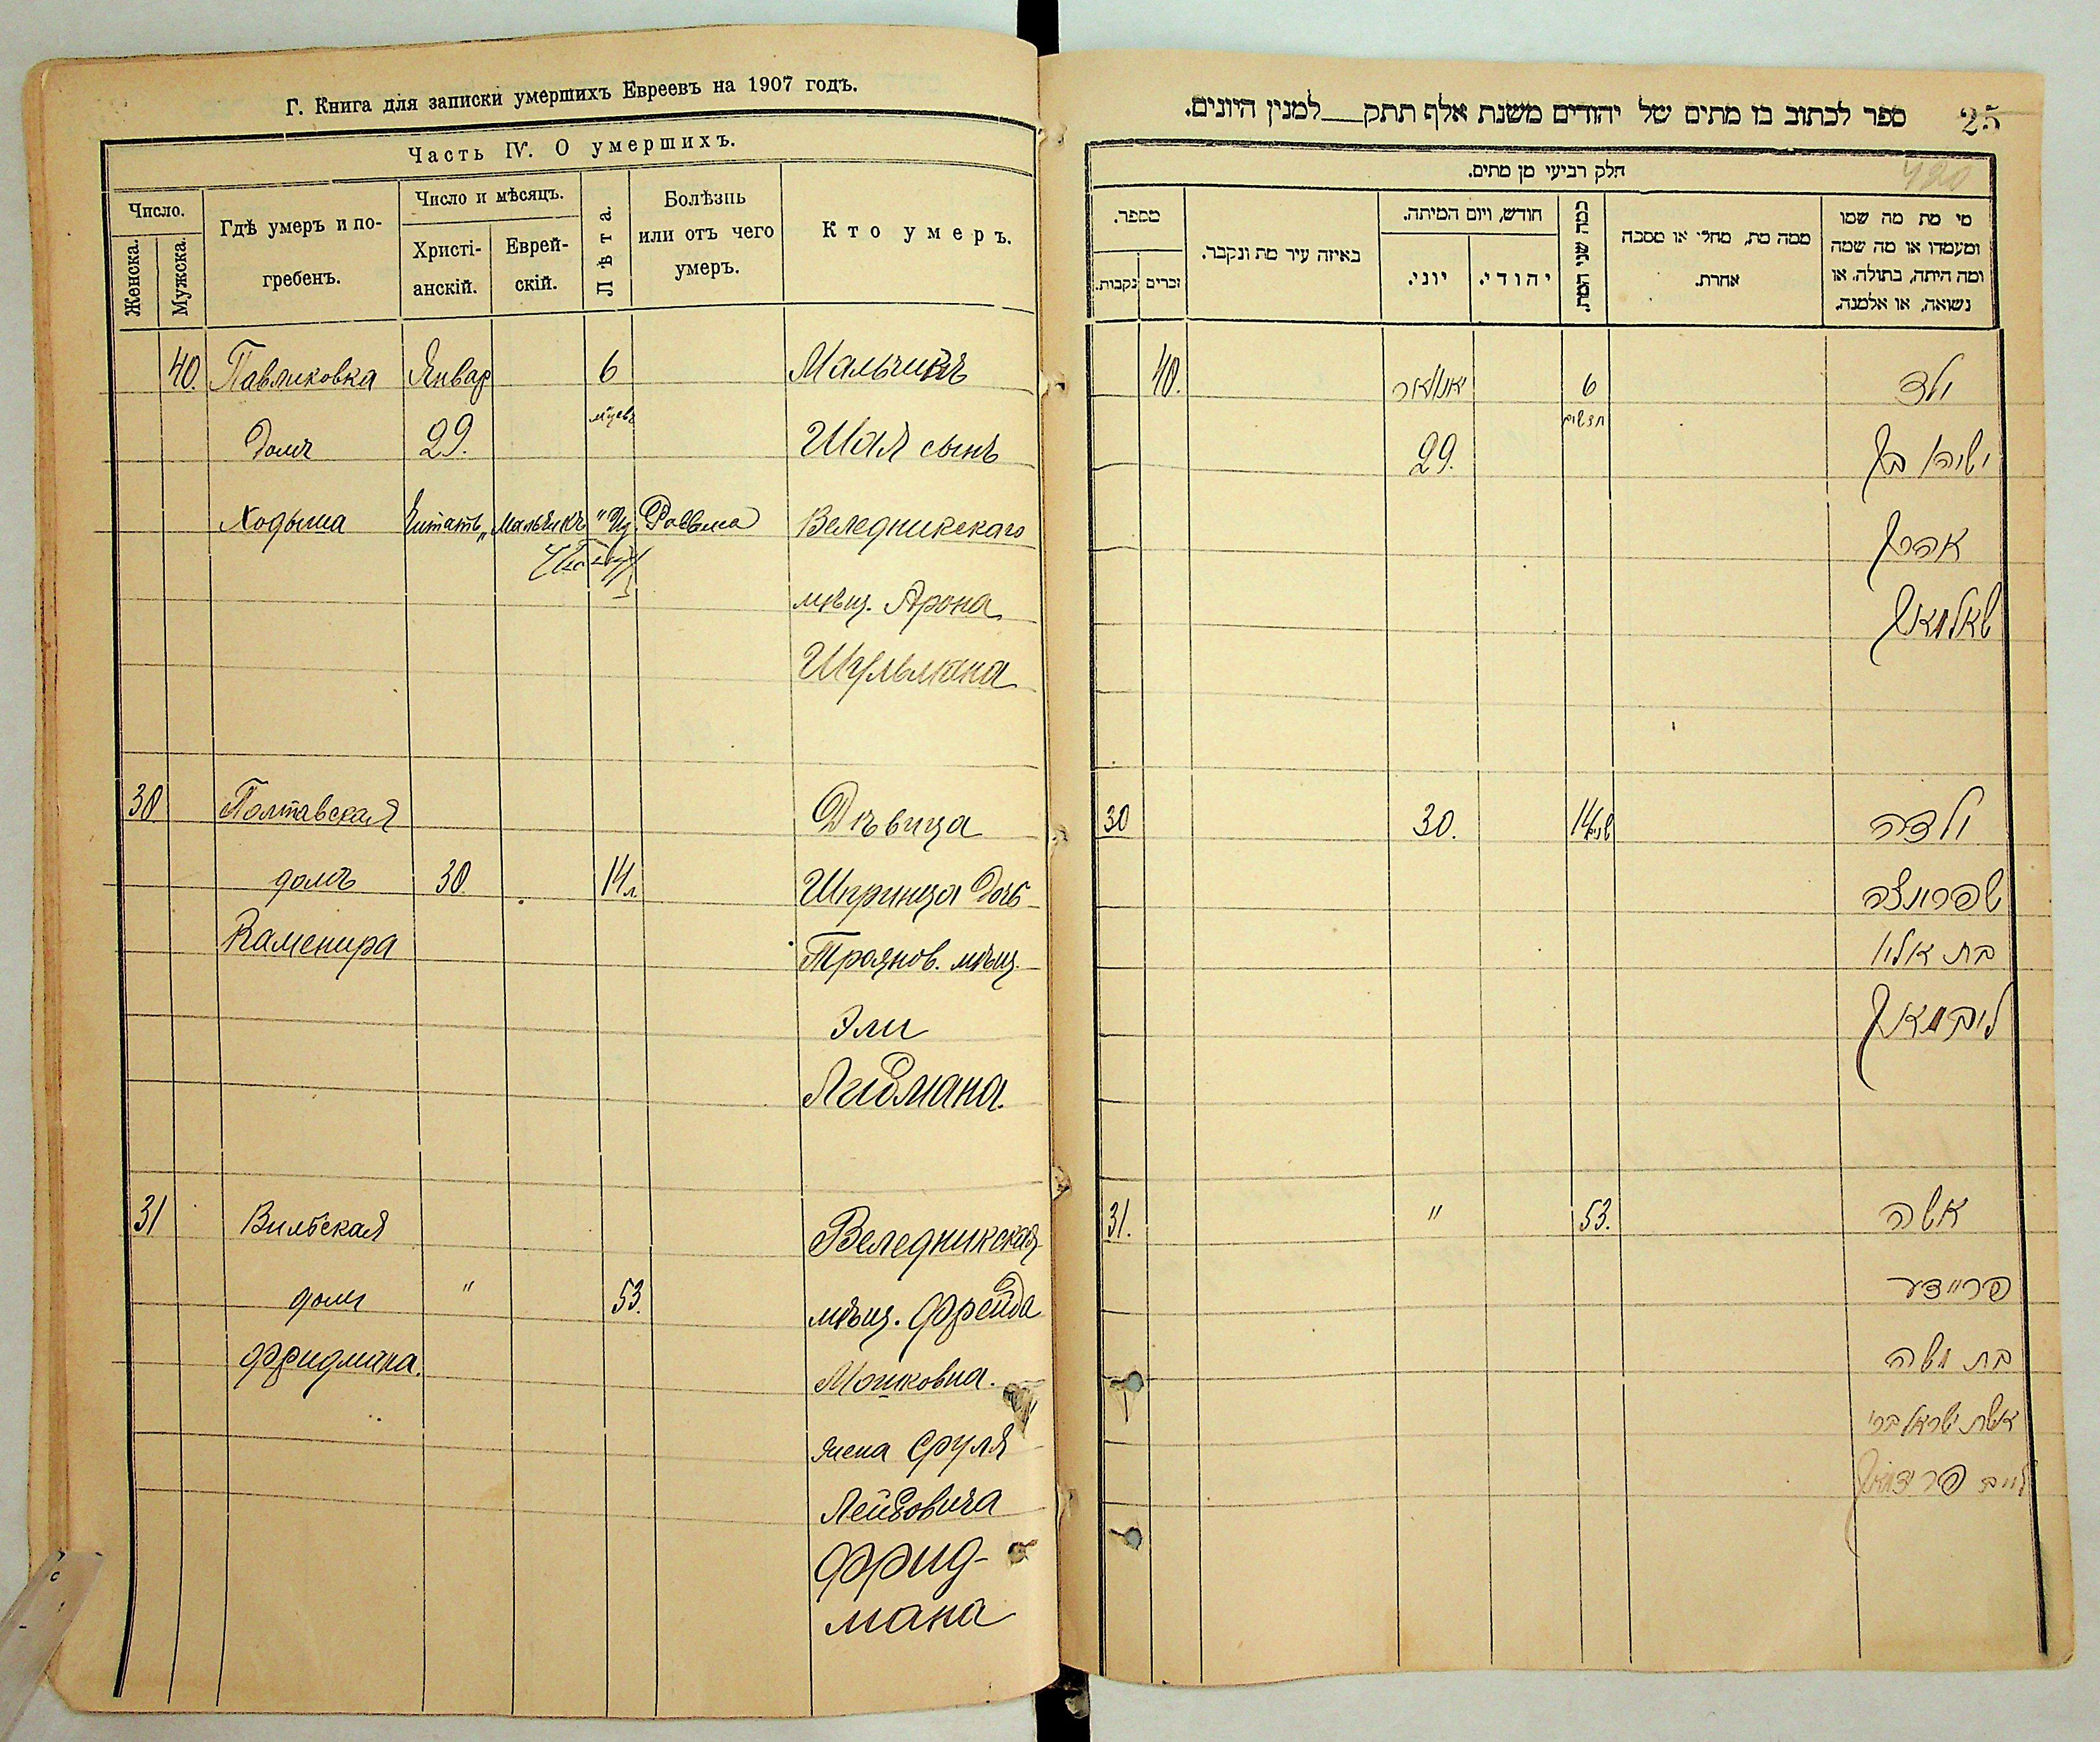 Г. Книга для записки умершихъ Евреевъ на 1907 годъ.
Часть IV. О умершихъ.
Число.
Женска.
Мужска.
Гдѣ умеръ и по-
гребенъ.
Число и мѣсяцъ.
Христі-
анскій.
Еврей-
скій.
Лѣта.
Болѣзнь
или отъ чего
умеръ.
Кто умеръ.
40. Павликовка Январ 6 Мальчикъ
мѣсев
домъ 29. Шая сынъ
Ходыша Читать „Мальчикъ" Веледникскаго
мѣщ. Арона
Шульмана
30 Полтавская Дѣвица
домъ 30 14 л. Шпринца дочь
Каменира Троянов. мѣщ.
Эли
Либмана.
31 Вильская Веледникская
домъ " 53. мѣщ. Фрейда
Фридмана. Мошковна.
жена Сруля
Лейбовича
Фрид-
мана
25
ספר לכתוב בו מתים של יהודים משנת אלף תתק למנין היונים.
420
חלק רביעי מן מתים.
מספר.
נקבות.
זכרים
באיזה עיר מת ונקבר.
חודש, ויום המיתה.
יוני.
יהודי.
כמה שני המת.
ממה מת, מחלי או מסבה
אחרת.
מי מת מה שמו
ומעמדו או מה שמה
ומה היתה, בתולה, או
נשואה, או אלמנה.
40. יאנואר 6 ילד
חדשים
29. ישיהו בן
אהרן
שאלמאן
30 30. 14 שנים ילדה
שפרינצה
בת אליו
ליבמאן
31. " 53. אשה
פריידע
בת משה
אשת ישראל בר׳
לייב פרידמאן